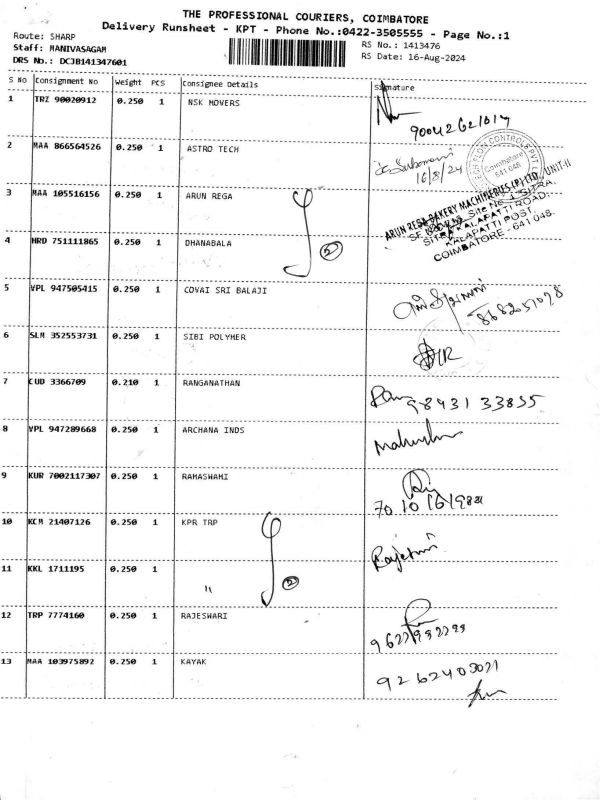 THE PROFESSIONAL COURIERS, COIMBATORE
Delivery Runsheet - KPT - Phone No.:0422-3505555 - Page No.:1
Route: SHARP
Staff: MANIVASAGAM
DRS No.: DCJB141347601
RS No.: 1413476
RS Date: 16-Aug-2024
S No Consignment No Weight PCS Consignee Details Signature
1 TRZ 90020912 0.250 1 NSK MOVERS
2 MAA 866564526 0.250 1 ASTRO TECH
16/8/24
Coimbatore
641 048
3 MAA 105516156 0.250 1 ARUN REGA
ARUN REGA BAKERY MACHINERIES (P) LTD., UNIT-II
Site No. 1, SITRA,
SITRA KALAPATTI ROAD,
KALAPATTI POST,
COIMBATORE - 641 048.
4 HRD 751111865 0.250 1 DHANABALA
2
5 VPL 947505415 0.250 1 COVAI SRI BALAJI
6 SLM 352553731 0.250 1 SIBI POLYMER
7 CUD 3366709 0.210 1 RANGANATHAN
98431 33855
8 VPL 947289668 0.250 1 ARCHANA INDS
9 KUR 7002117307 0.250 1 RAMASWAMI
10 KCM 21407126 0.250 1 KPR TRP
11 KKL 1711195 0.250 1 "
2
12 TRP 7774160 0.250 1 RAJESWARI
13 MAA 103975892 0.250 1 KAYAK
9262403021